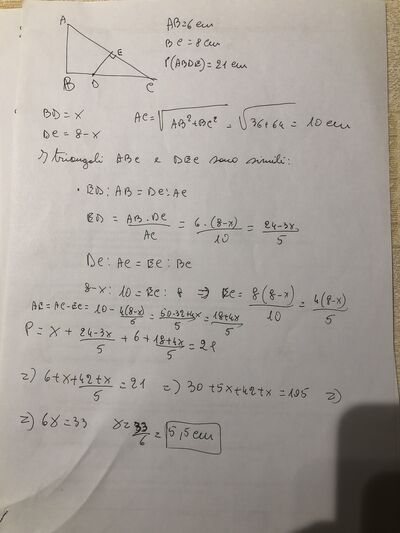 A
E
B D C
AB=6 cm
BC=8 cm
P(ABDE)=21 cm
BD=x
DC=8-x
AC=√(AB²+BC²) = √(36+64) = 10 cm
I triangoli ABC e DEC sono simili:
• ED:AB=DC:AC
ED = (AB·DC)/AC = (6·(8-x))/10 = (24-3x)/5
DC:AC=EC:BC
8-x:10=EC:8 => EC=(8(8-x))/10 = (4(8-x))/5
AE=AC-EC=10-(4(8-x))/5=(50-32+4x)/5=(18+4x)/5
P=x+(24-3x)/5+6+(18+4x)/5=21
=) 6+x+(42+x)/5=21 =) 30+5x+42+x=105 =)
=) 6x=33 x=33/6=5,5 cm